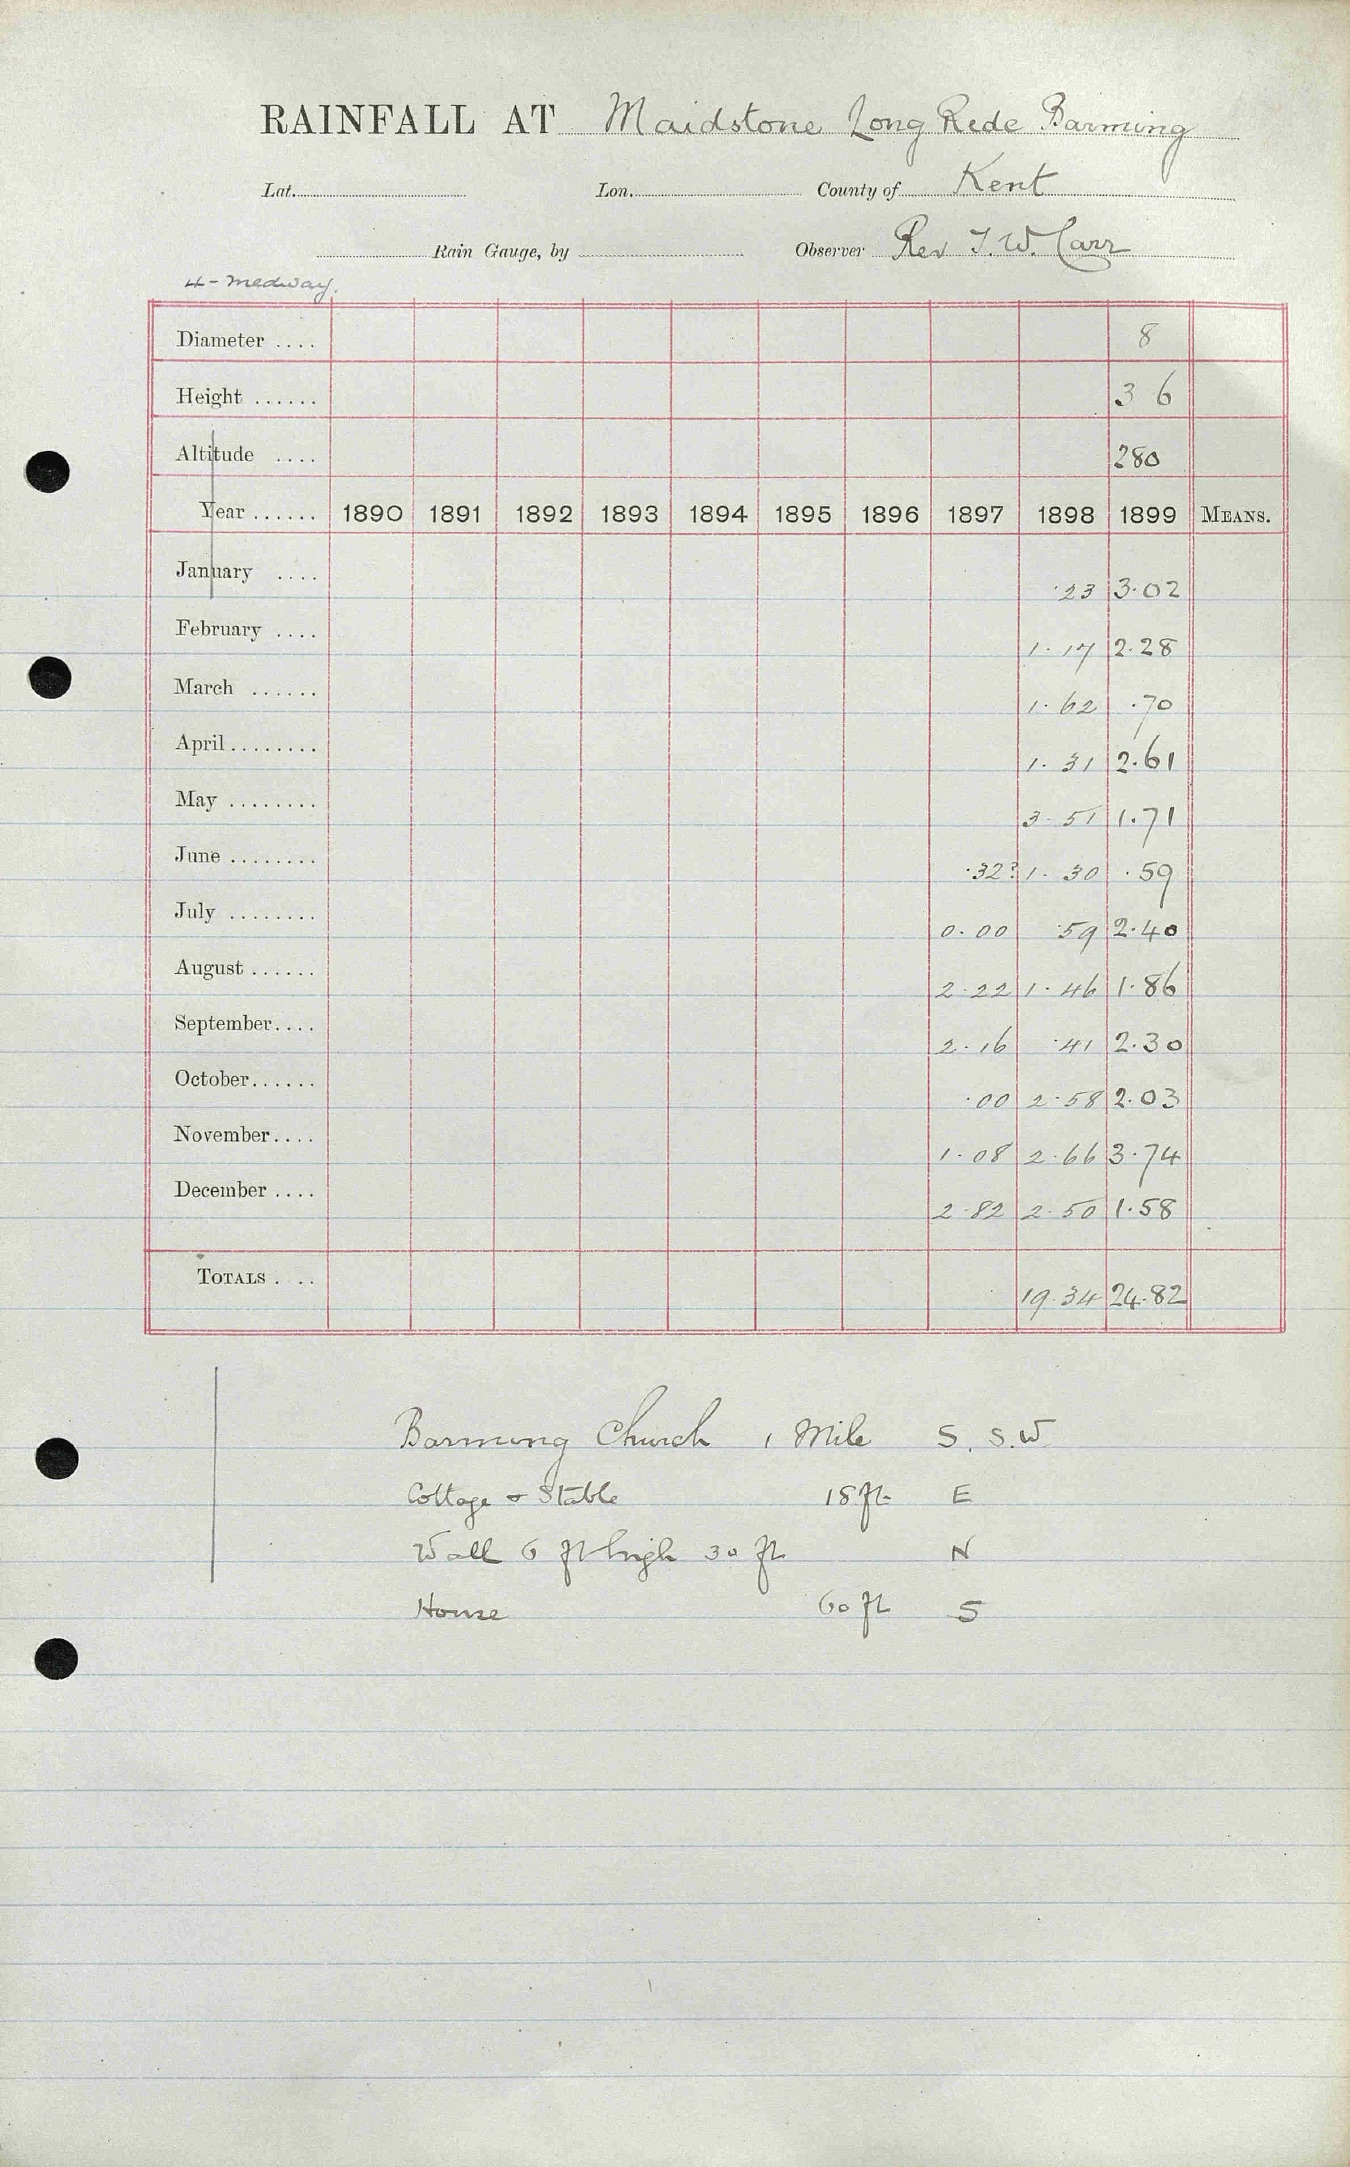 RAINFALL AT Maidstone Long Rede Barming
Lat. Lon. County of Kent
Rain Gauge, by Observer Rev T. W. Carr
4 - Medway.
Diameter .... 8
Height ...... 3 6
Altitude .... 280
Year ...... 1890 1891 1892 1893 1894 1895 1896 1897 1898 1899 MEANS.
January .... .23 3.02
February .... 1.17 2.28
March ...... 1.62 .70
April ........ 1.31 2.61
May ........ 3.51 1.71
June ........ .32? 1.30 .59
July ........ 0.00 .59 2.40
August ...... 2.22 1.46 1.86
September.... 2.16 .41 2.30
October...... .00 2.58 2.03
November.... 1.08 2.66 3.74
December .... 2.82 2.50 1.58
TOTALS .... 19.34 24.82
Barming Church 1 Mile S. S.W.
Cottage & Stable 18 ft E
Wall 6 ft high 30 ft N
House 60 ft S